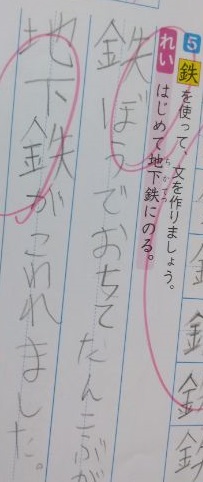 5 鉄を使って、文を作りましょう。
れい はじめて地下鉄にのる。
ちかてつ
鉄ぼうでおちてたんこぶが
地下鉄がこわれました。